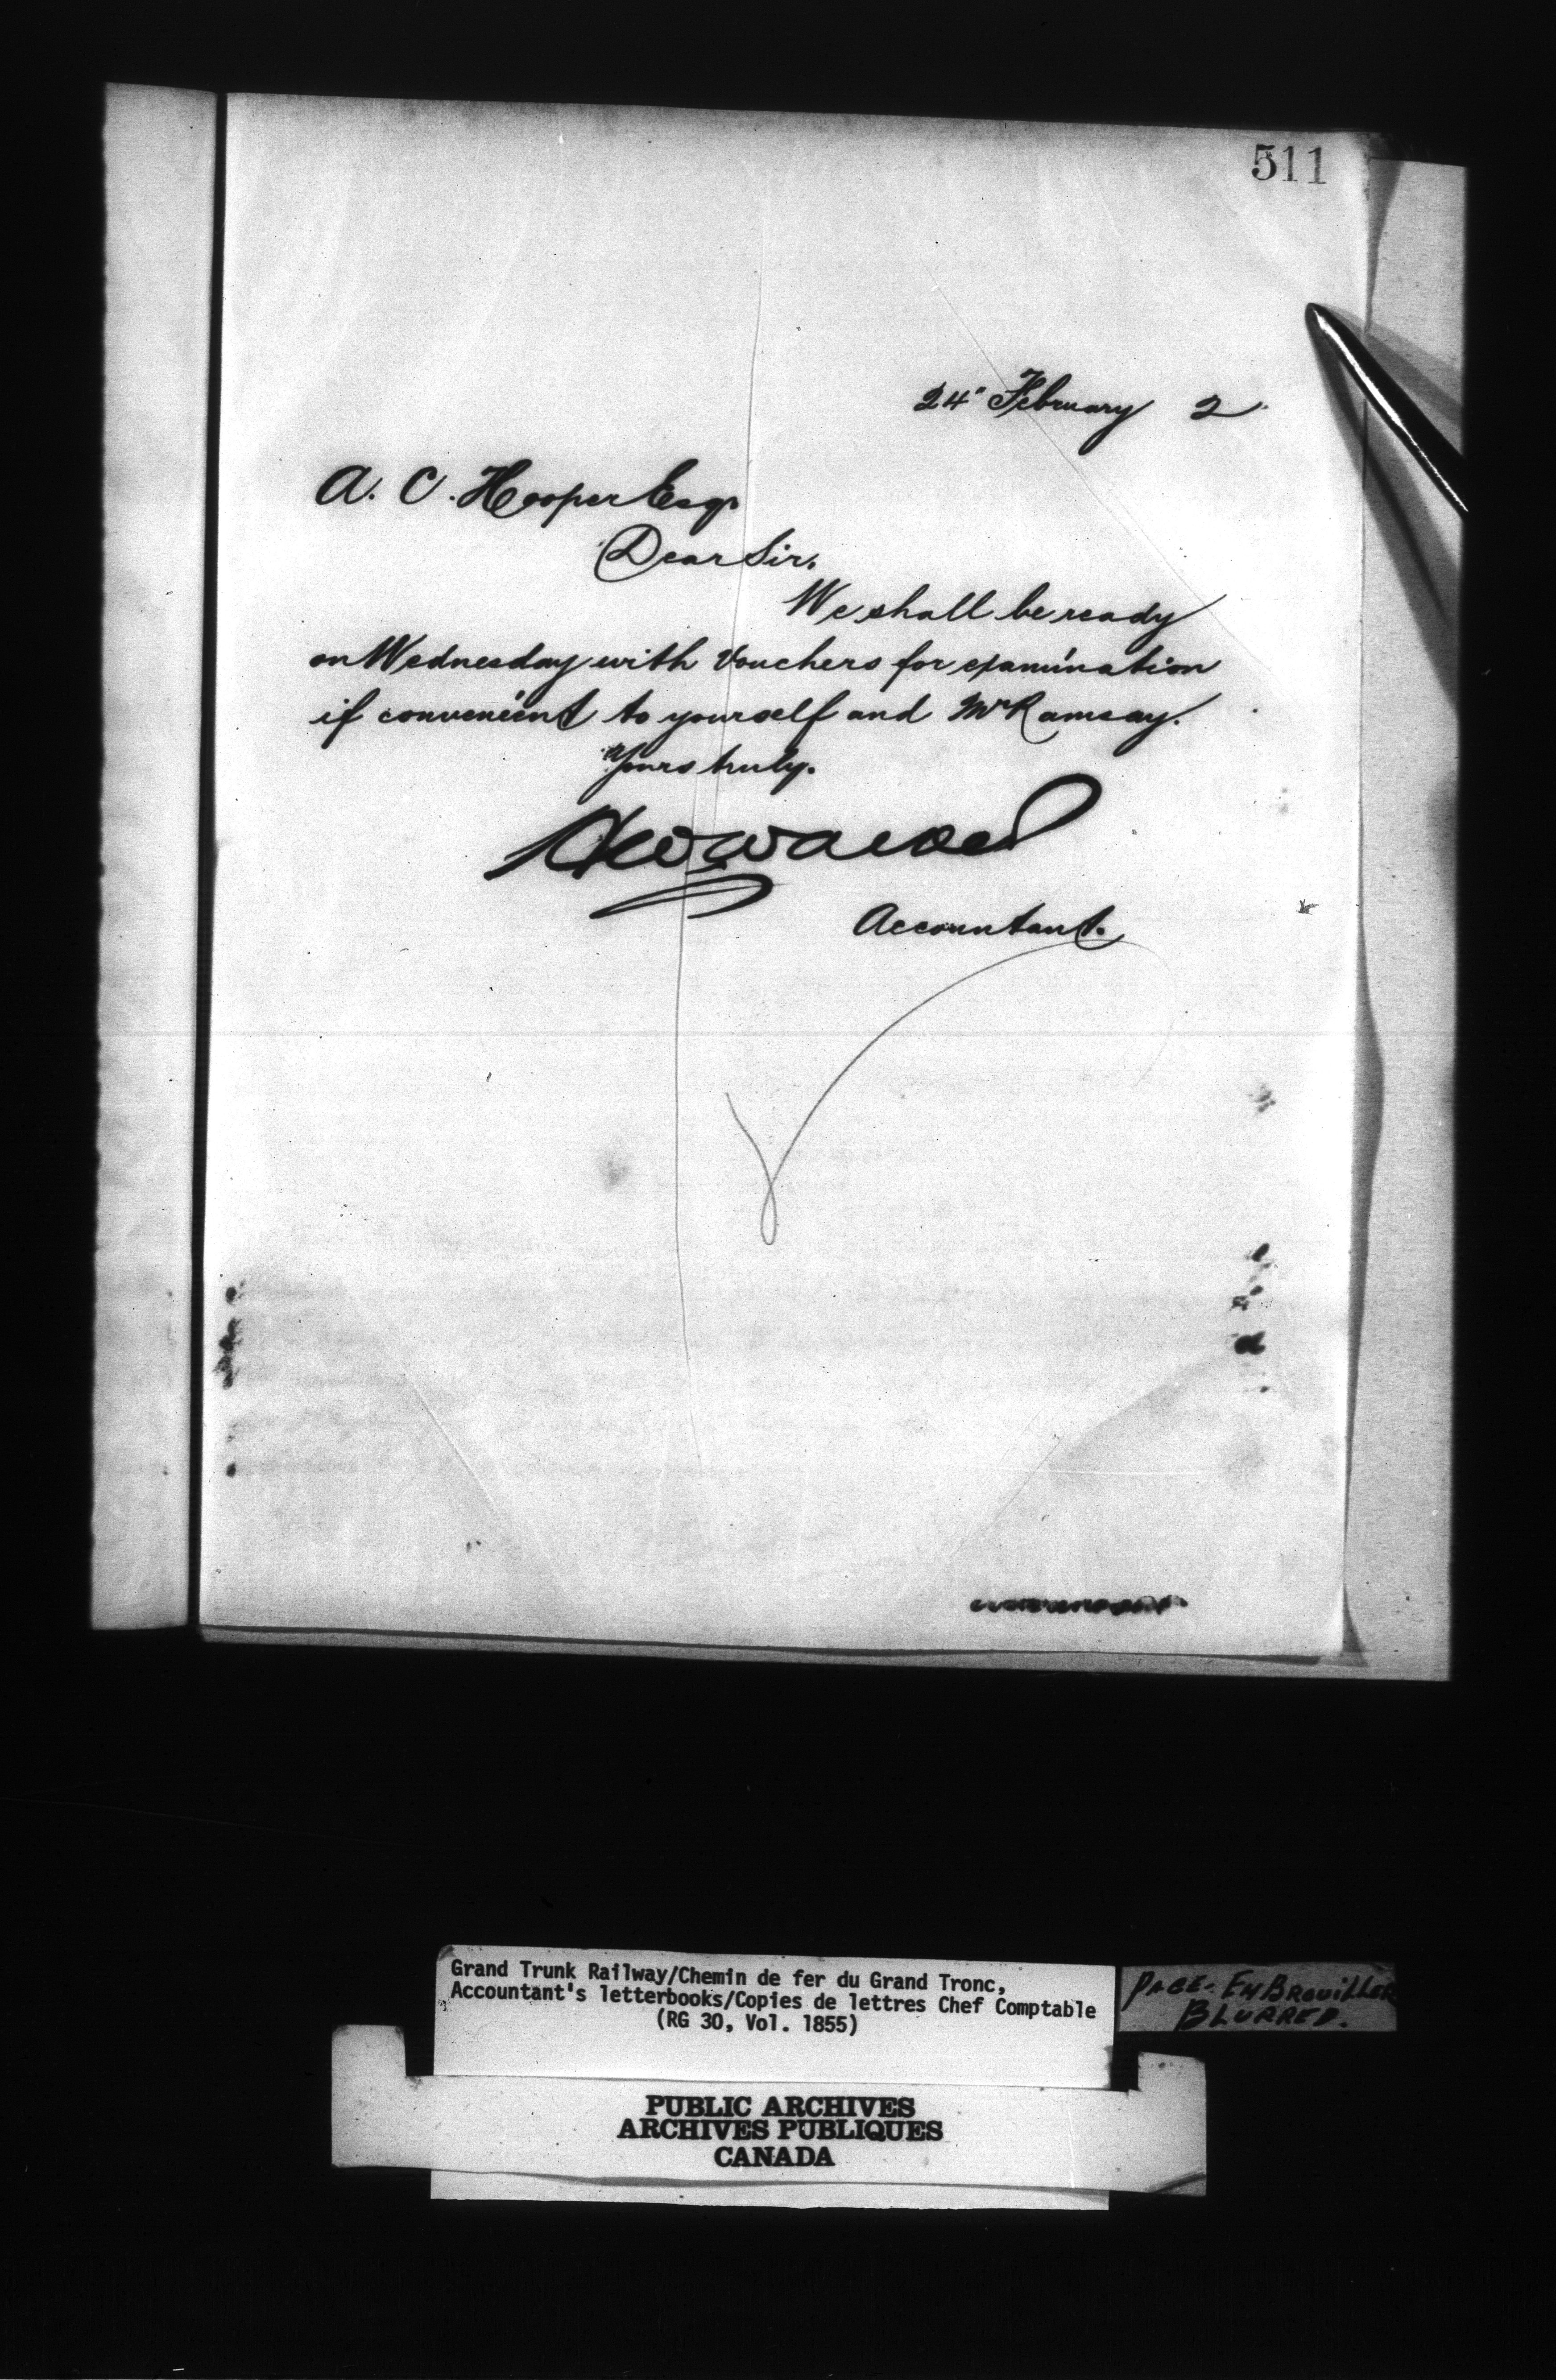 511
24" February 2
A. C. Hooper Esqr
Dear Sir.
We shall be ready
on Wednesday with Vouchers for examination
if convenient to yourself and Mr Ramsay.
Yours truly.
Accountant.
Grand Trunk Railway/Chemin de fer du Grand Tronc,
Accountant's letterbooks/Copies de lettres Chef Comptable
(RG 30, Vol. 1855)
PAGE-EMBROUILLER
BLURRED.
PUBLIC ARCHIVES
ARCHIVES PUBLIQUES
CANADA